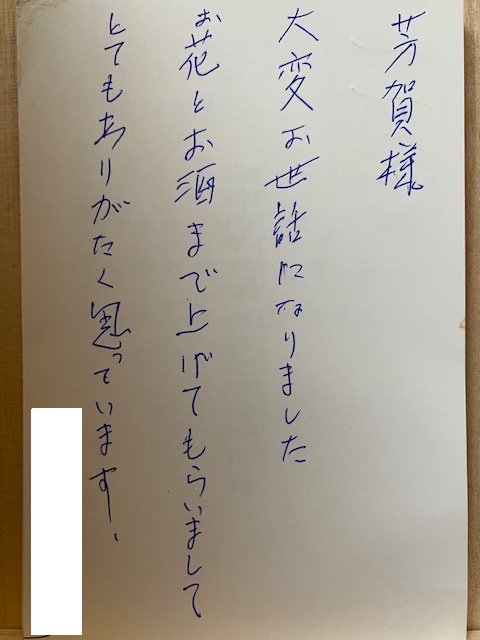 芳賀様
大変お世話になりました
お花とお酒まで上げてもらいまして
とてもありがたく思っています、